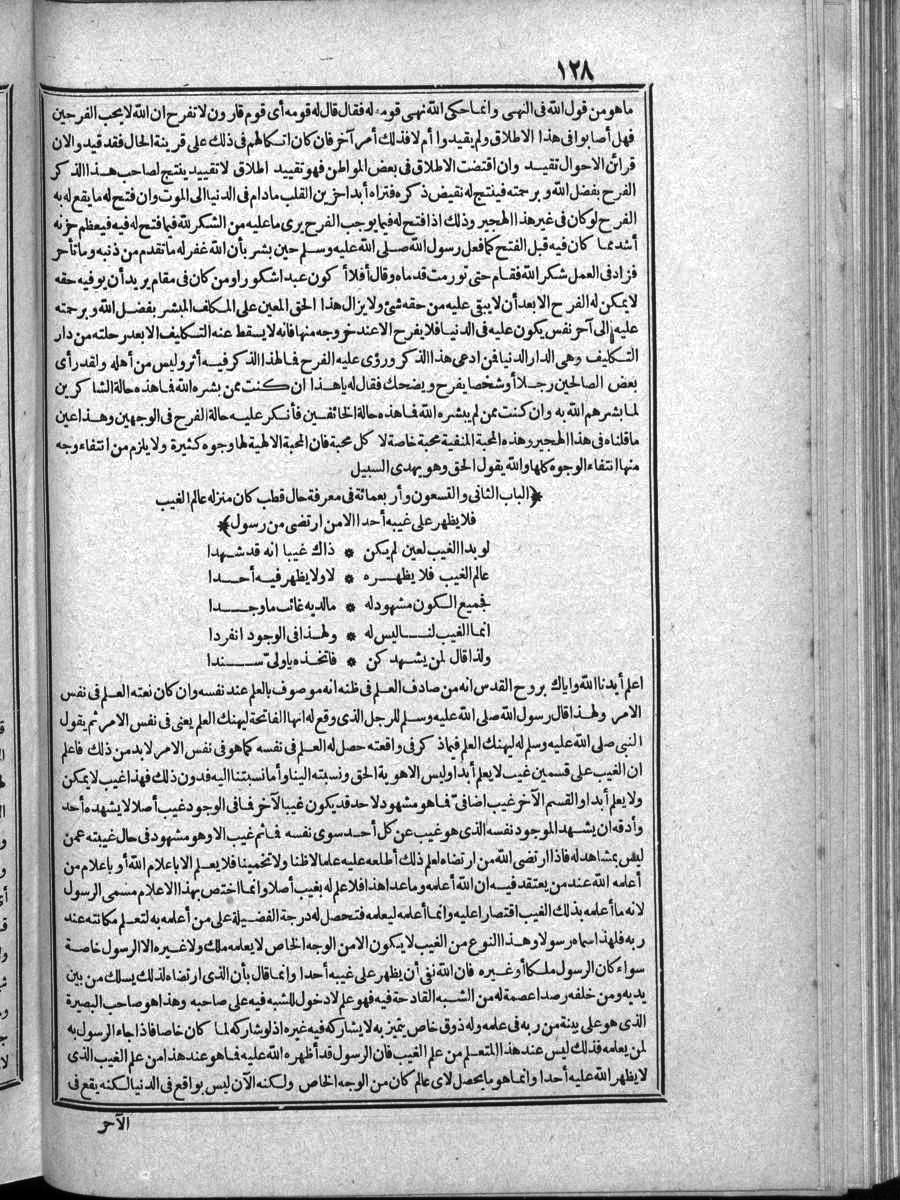 ١٢٨
ماهو من قول الله فى النهى وانما حكى الله نهى قومه له فقال قال له قومه أى قوم قارون لا تفرح ان الله لا يحب الفرحين
فهل أصابوا فى هذا الاطلاق ولم يقيدوا أم لا فذلك أمر آخر فان كان اتكالهم فى ذلك على قرينة الحال فقد قيدوا لان
قرائن الاحوال تقيد وان اقتضت الاطلاق فى بعض المواطن فهو تقييد اطلاق لا تقييد ينتج لصاحب هذا الذكر
الفرح بفضل الله وبرحمته فينتج له نقيض ذكره فتراه أبدا حزين القلب مادام فى الدنيا الى الموت وان فتح له ما يقع له به
الفرح لو كان فى غير هذا الهجير وذلك اذا فتح له فيما يوجب الفرح يرى ما عليه من الشكر لله فيما فتح له فيه فيعظم حزنه
أشد مما كان فيه قبل الفتح كما فعل رسول الله صلى الله عليه وسلم حين بشر بأن الله غفر له ما تقدم من ذنبه وما تأخر
فزاد فى العمل شكر الله فقام حتى تورمت قدماه وقال أفلا أكون عبدا شكورا ومن كان فى مقام يريد أن يوفيه حقه
لا يمكن له الفرح الا بعد أن لا يبقى عليه من حقه شئ ولا يزال هذا الحق المعين على المكلف المبشر بفضل الله وبرحمته
عليه الى آخر نفس يكون عليه فى الدنيا فلا يفرح الا عند خروجه منها فانه لا يسقط عنه التكليف الا بعد رحلته من دار
التكليف وهى الدار الدنيا فمن ادعى هذا الذكر ورؤى عليه الفرح فما لهذا الذكر فيه أثر وليس من أهله ولقد رأى
بعض الصالحين رجلا أو شخصا يفرح ويضحك فقال له ياهذا ان كنت ممن بشره الله فما هذه حالة الشاكرين
لما بشرهم الله به وان كنت ممن لم يبشره الله فما هذه حالة الخائفين فأنكر عليه حالة الفرح فى الوجهين وهذا عين
ما قلناه فى هذا الهجير وهذه المحبة المنفية محبة خاصة لا كل محبة فان المحبة الالهية لها وجوه كثيرة ولا يلزم من انتفاء وجه
منها انتفاء الوجوه كلها والله يقول الحق وهو يهدى السبيل
﴿الباب الثانى والتسعون وأربعمائة فى معرفة حال قطب كان منزله عالم الغيب
فلا يظهر على غيبه أحدا الا من ارتضى من رسول﴾
لو بدا الغيب لعين لم يكن * ذاك غيبا انه قد شهدا
عالم الغيب فلا يظهره * لا ولا يظهر فيه أحدا
فجميع الكون مشهود له * ما لديه غائب ما وجدا
انما الغيب لنا ليس له * ولهذا فى الوجود انفردا
ولذا قال لمن يشهد كن * فاتخذه ياوليى سندا
اعلم أيدنا الله واياك بروح القدس انه من صادف العلم فى ظنه أنه موصوف بالعلم عند نفسه وان كان نعته العلم فى نفس
الامر ولهذا قال رسول الله صلى الله عليه وسلم للرجل الذى وقع له انها الفاتحة ليهنك العلم يعنى فى نفس الامر ثم يقول
النبى صلى الله عليه وسلم له ليهنك العلم فيما ذكر فى واقعته حصل له العلم فى نفسه كما هو فى نفس الامر لابد من ذلك فاعلم
ان الغيب على قسمين غيب لا يعلم أبدا وليس الا هوية الحق ونسبته الينا وأما نسبتنا اليه فدون ذلك فهذا غيب لا يمكن
ولا يعلم أبدا والقسم الآخر غيب اضافى فما هو مشهود لاحد قد يكون غيبا لآخر فما فى الوجود غيب أصلا لا يشهده أحد
وأدقه ان يشهد الموجود نفسه الذى هو غيب عن كل أحد سوى نفسه فما ثم غيب الا وهو مشهود فى حال غيبته عمن
ليس بمشاهد له فاذا ارتضى الله من ارتضاه لعلم ذلك أطلعه عليه علما لا ظنا ولا تخمينا فلا يعلم الا باعلام الله أو باعلام من
أعلمه الله عند من يعتقد فيه ان الله أعلمه وما عدا هذا فلا علم له بغيب أصلا وانما اختص بهذا الاعلام مسمى الرسول
لانه ما أعلمه بذلك الغيب اقتصارا عليه وانما أعلمه ليعلمه فتحصل له درجة الفضيلة على من أعلمه به لتعلم مكانته عند
ربه فلهذا سماه رسولا وهذا النوع من الغيب لا يكون الا من الوجه الخاص لا يعلمه ملك ولا غيره الا الرسول خاصة
سواء كان الرسول ملكا أو غيره فان الله نفى أن يظهر على غيبه أحدا وانما قال بأن الذى ارتضاه لذلك يسلك من بين
يديه ومن خلفه رصدا عصمة له من الشبه القادحة فيه فهو علم لا دخول للشبه فيه على صاحبه وهذا هو صاحب البصيرة
الذى هو على بينة من ربه فى علمه وله ذوق خاص يتميز به لا يشاركه فيه غيره اذ لو شاركه لما كان خاصا فاذا جاء الرسول به
لمن يعلمه فذلك ليس عند هذا المتعلم من علم الغيب فان الرسول قد أظهره الله عليه فما هو عند هذا من علم الغيب الذى
لا يظهر الله عليه أحدا وانما هو ما يحصل لاى عالم كان من الوجه الخاص ولكنه الآن ليس بواقع فى الدنيا لكنه يقع فى
الآخر